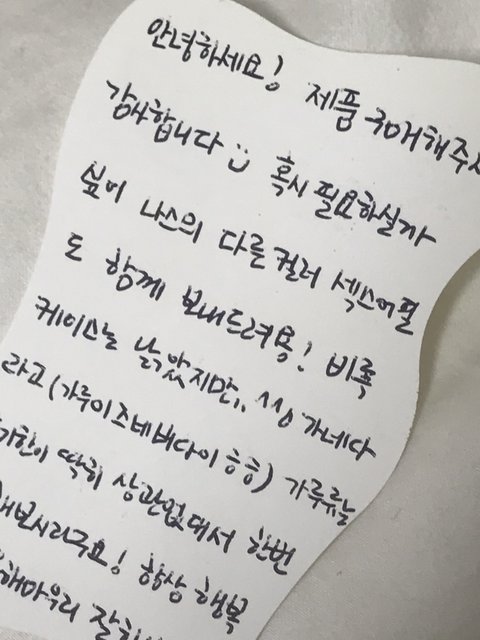 안녕하세요! 제품 구매해주시
감사합니다 혹시 필요하실까
싶어 나스의 다른컬러 섹스어필
도 함께 보내드려용! 비록
케이스는 낡았지만,, 가네다
라고 (가루이즈네버다이 흐흐) 가루류는
기한이 딱히 상관없대서 한번
해보시라구요! 항상 행복
해마우리 잘